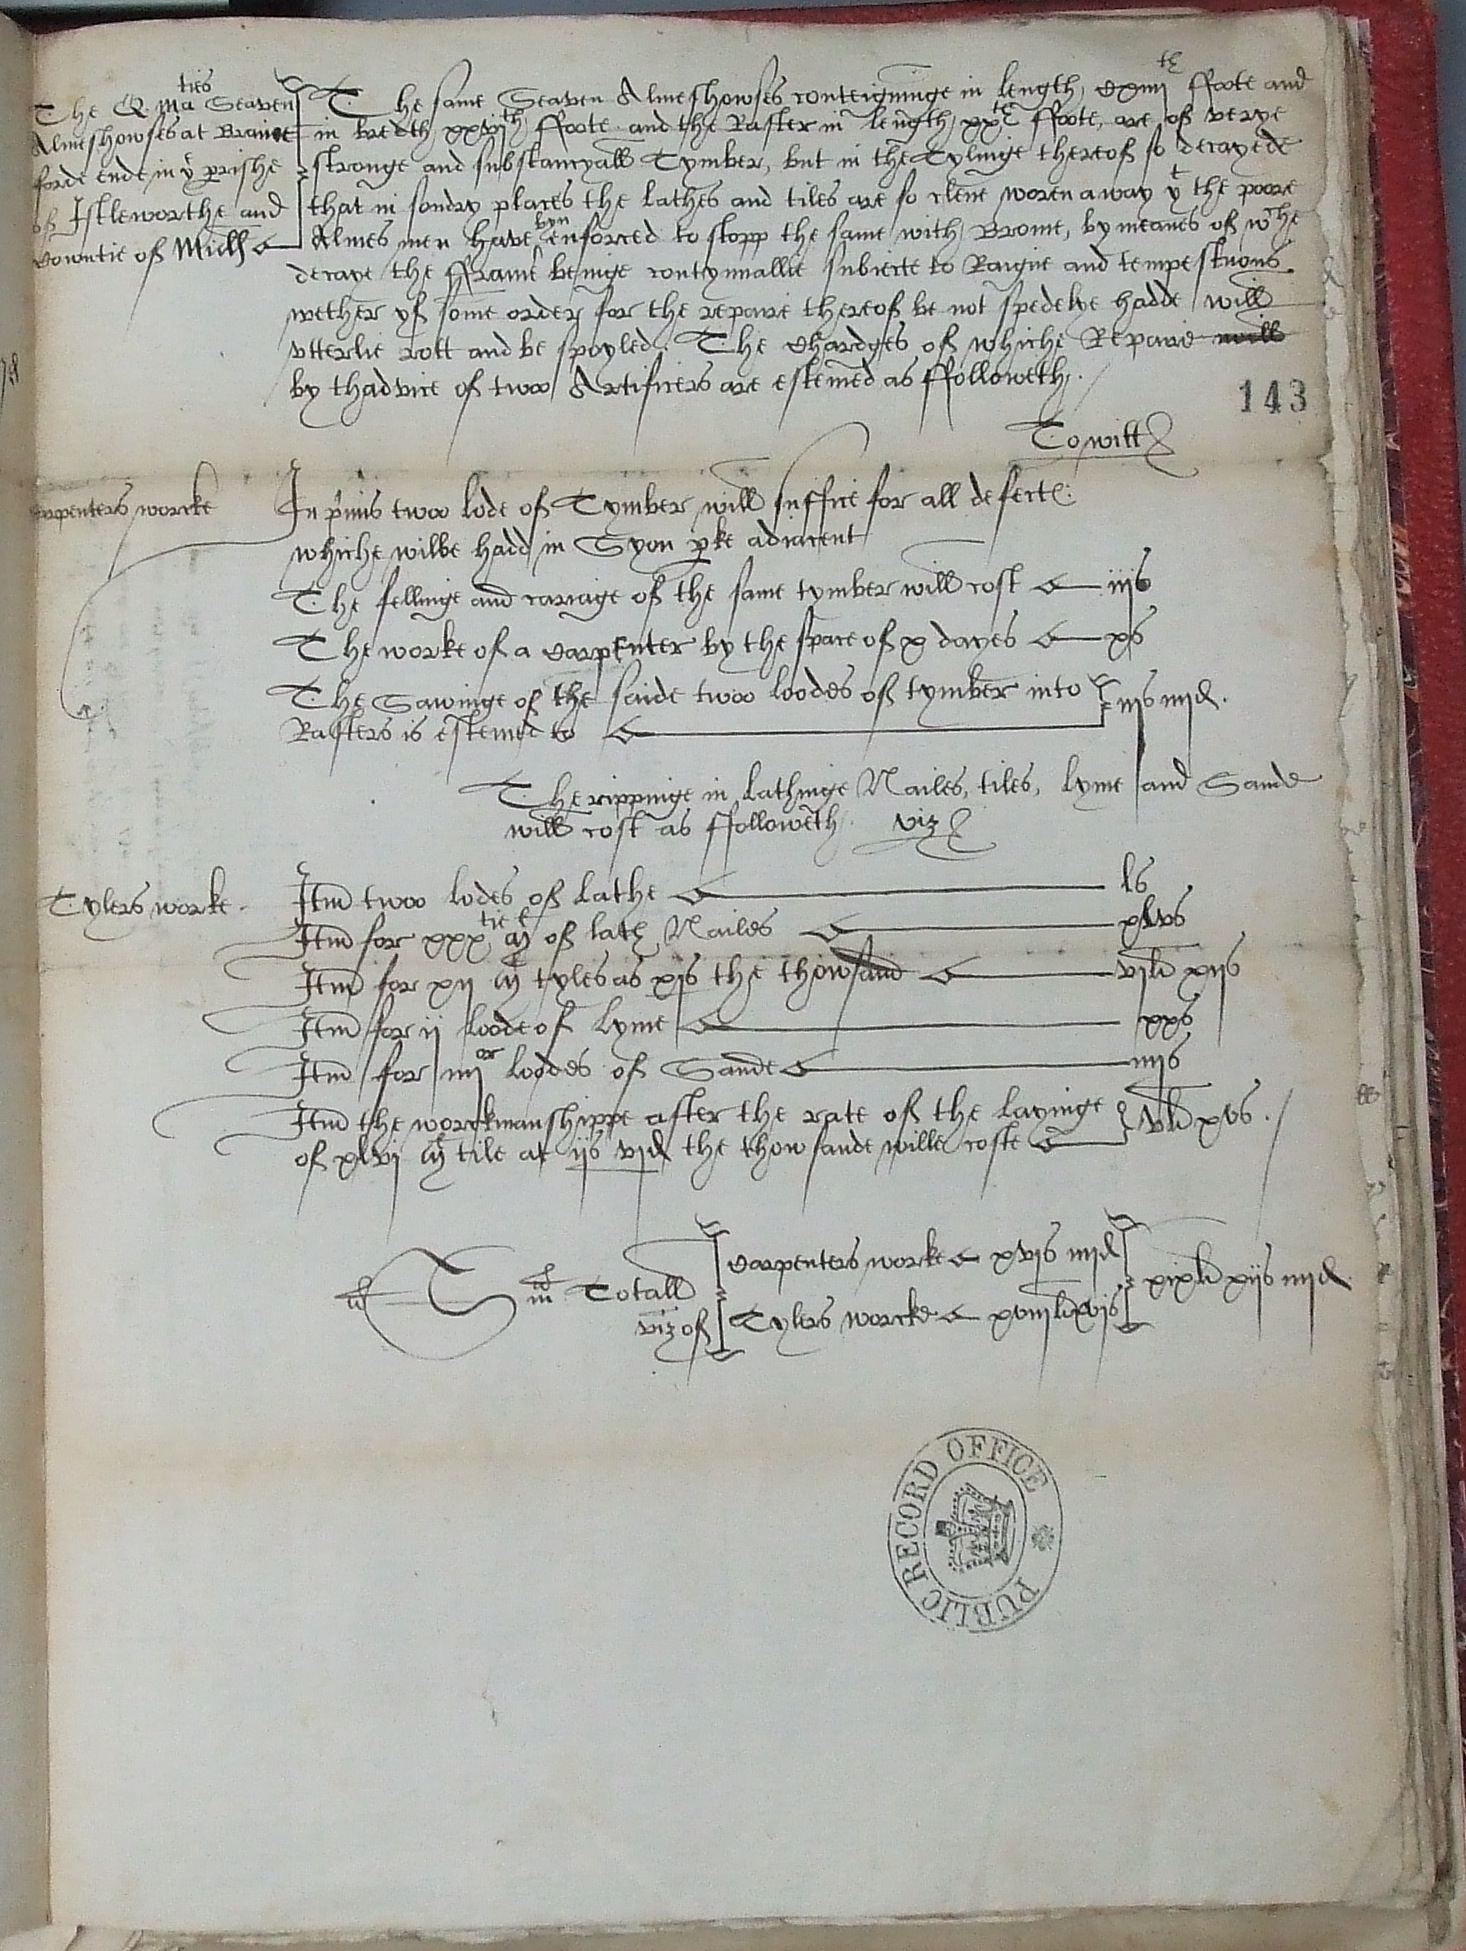 The Q. Maties Seaven
Almeshowses at Braine
forde ende in ye prishe
of Istleworthe and
Countie of Midd
The same Seaven Almeshowses conteigninge in length, Cxiiijth ffoote and
in bredth xxvith ffoote and the Rafter in length xxtie ffoote, are of verye
stronge and substancyall Tymber, but in the Tylinge thereof so decayede
that in sondry places the lathes and tiles are so clene woren away yt the poore
Almes men have byn enforced to stopp the same with Brome, by meanes of wche
decaye the fframe beinge contynuallie subiecte to Raigne and tempestuous
wether yf some order for the repaire thereof be not spedelye hadde will
vtterlie rott and be spoyled. The Chardges of whiche Repaire will
by thadvice of twoo Artificers are estemed as ffolloweth.
143
To witt
Carpenters worcke
In primis twoo lode of Tymber will suffice for all defectes
whiche wilbe hadd in Syon pke adiacent
The fellinge and cariage of the same tymber will cost iijs
The worke of a Carpenter by the space of x dayes xs
The Sawinge of the saide twoo loodes of tymber into
Rafters is estemed to iijs iiijd.
The rippinge in Lathinge Nailes, tiles, lyme and Sande
will cost as ffolloweth. viz
Tylers worke.
Itm twoo lodes of lathe ls
Itm for xxxtie M of lath Nailes xlvs
Itm for xij M tyles as xjs the thowsand vjli xijs
Itm for ij loode of lyme xxs
Itm for iiijor loodes of Sande iiijs
Itm the worckmanshippe after the rate of the layinge
of xlvj M tile at ijs vjd the thowsande will coste vli xvs.
Sm Totall
viz of
Carpenters worke xvjs iiijd
Tylers worcke xviijli xvjs
xixli xijs iiijd
PUBLIC RECORD OFFICE